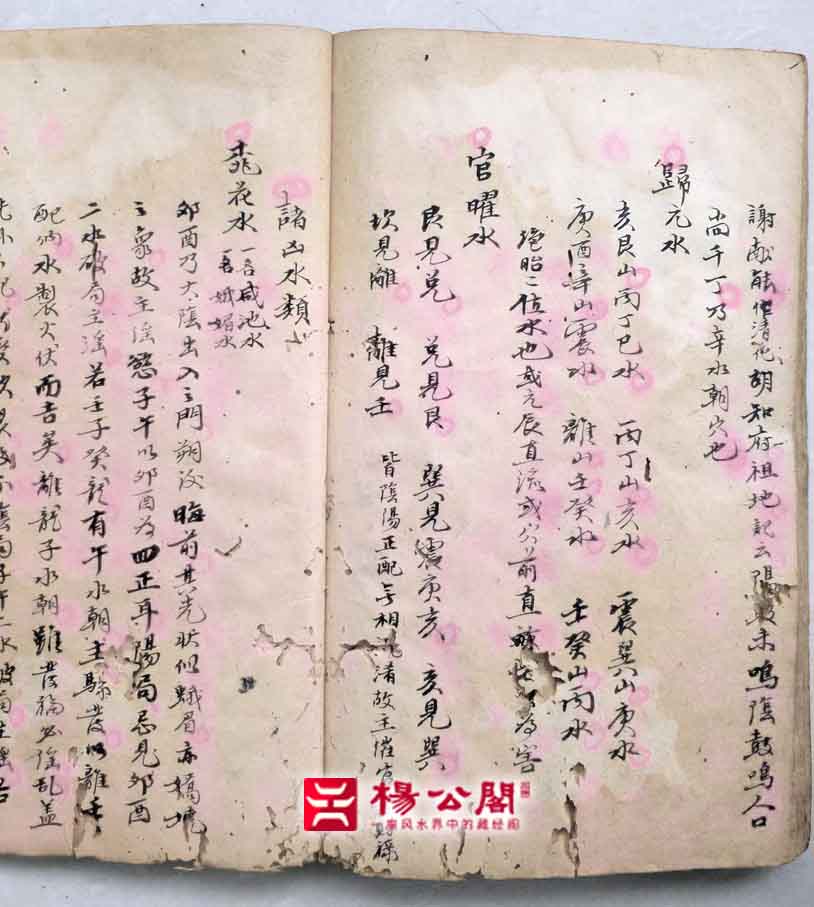 謝㪫能作清花胡知府祖地記云陽鼓未鳴陰鼓鳴人口
尚千丁乃辛水朝穴也
歸元水
亥艮山丙丁巳水 丙丁山亥水 震巽山庚水
庚酉辛山震水 離山壬癸水 壬癸山丙水
絕胎二位水也或元辰直流或穴前直 為害
官曜水
艮見兌 兌見艮 巽見震庚亥 亥見巽
坎見離 離見壬 皆陰陽正配無相 淆故主催官 祿
諸凶水類
桃花水 一名咸池水
一名娥媚水
卯酉乃太陰出入之門朔後晦前其光狀似蛾眉亦嬌
之象故主淫慾子午以卯酉為四正耳陽局忌見卯酉
二水破局主淫若壬子癸龍有午水朝主驟發以離壬
配納水製火伏而吉矣離龍子水朝雖發福必淫乱盖
楊公閣
一座风水界中的藏经阁